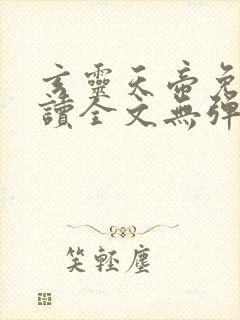 玄靈天帝免
讀全文無彈
笑輕塵